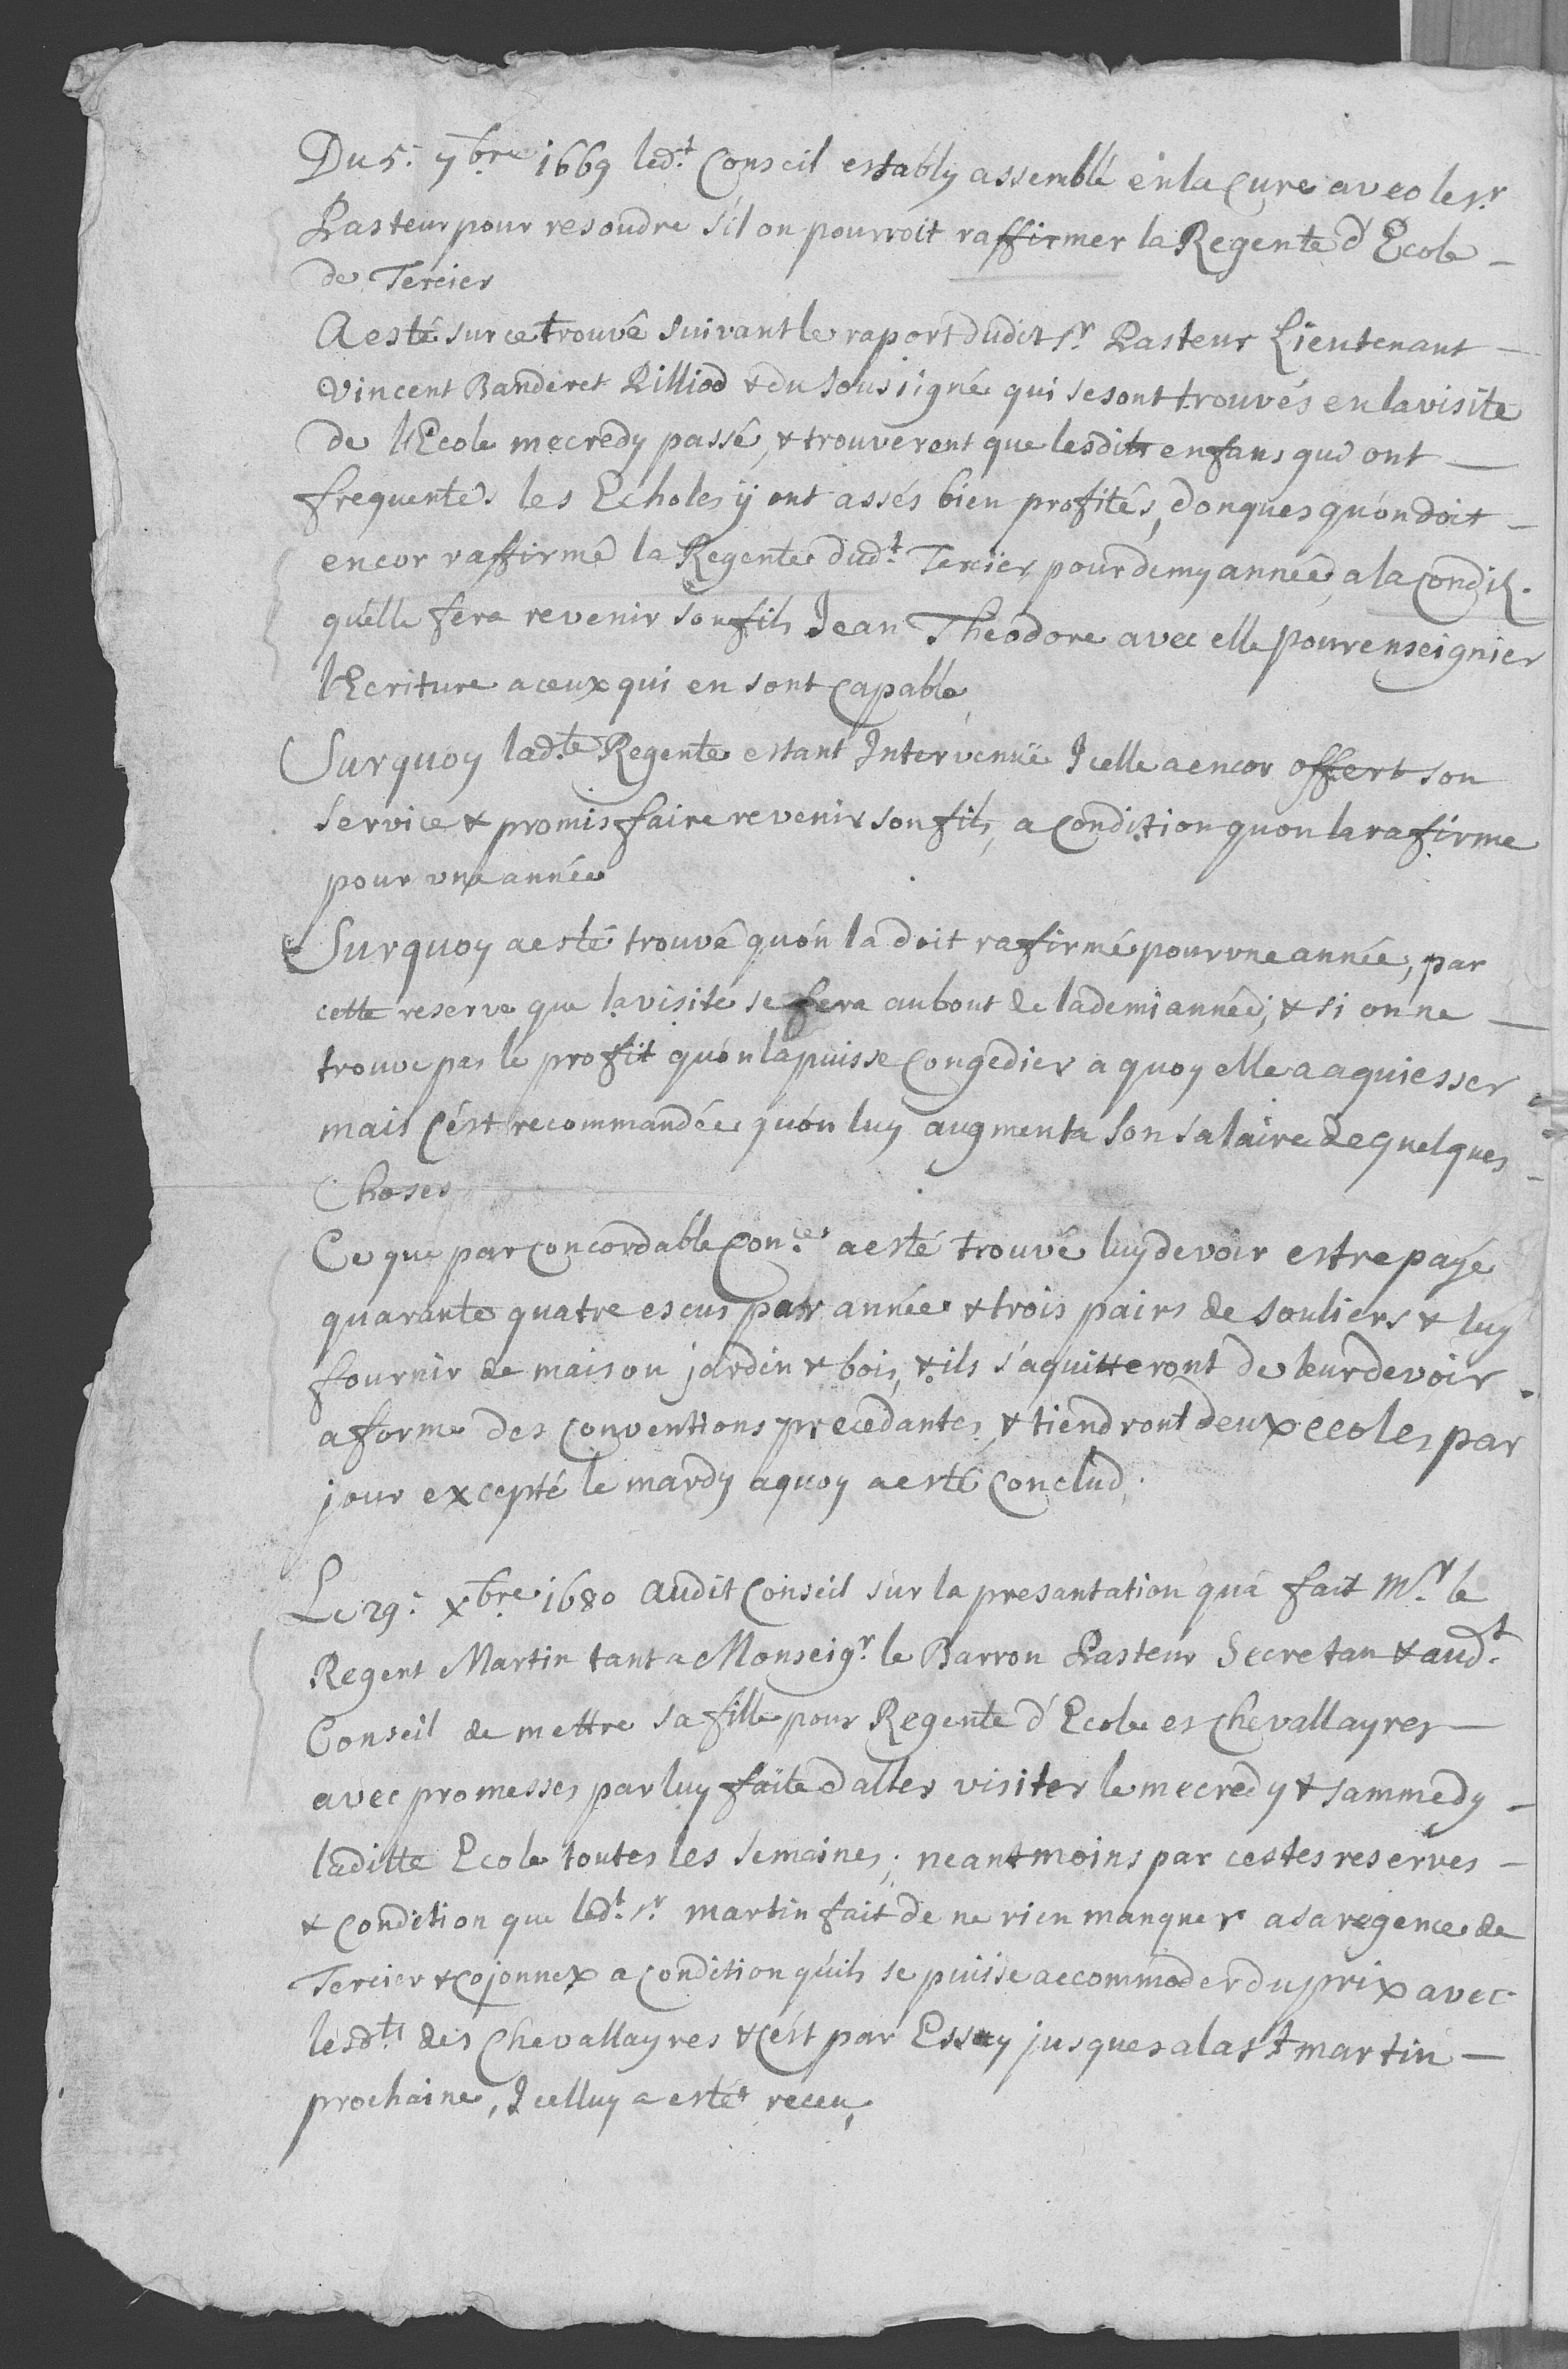 Du 5.e 7bre 1669 led.t Conseil estably assemblé en la Cure avec le sr.
Pasteur pour resoudre s'il on pourroit raffirmer la Regente d'Ecole
de Tercier
A esté sur ce trouvé suivant le raport dudit sr. Pasteur Lieutenant
Vincent Banderet Pilliod & du soussigné qui se sont trouvés en la visite
de l'Ecole mecredy passé, & trouveront que lesdits enfans qui ont
frequentés les Echoles ÿ ont assés bien profités, donques qu'on doit
encor raffirmé la Regente dud.t Tercier pour demy année, a la condit.
qu'elle fera revenir son fils Jean Theodore avec elle pour enseignier
l'Ecriture a ceux qui en sont Capable,
Surquoy lad.te Regente estant Intervenuë Icelle a encor offert son
service & promis faire revenir son fils, a Condition quon la rafirme
pour une année
Surquoy a esté trouvé qu'on la doit rafirmé pour une année, par
cette reserve que la visite se fera au bout de la demi année, & si on ne
trouve pas le profit qu'on la puisse Congedier a quoy elle a aquiesser
mais C'est recommandée qu'on luy augmenta son salaire de quelques
Choses
Ce que par Concordable Con.ces a esté trouvé luy devoir estre payé
quarante quatre escus par année & trois pairs de souliers & luy
fournir de maison jardin & bois, & ils s'aquitteront de leur devoir
a forme des Conventions precedantes, & tiendront deux ecoles par
jour excepté le mardy a quoy a esté Conclud.
Le 29.e xbre 1680 audit Conseil sur la presantation qu'a fait Mr. le
Regent Martin tant a Monseigr. le Barron Pasteur Secretan & aud.t
Conseil de mettre sa fille pour Regente d'Ecole es Chevallayres
avec promesses par luy faite d'aller visiter le mecredy & sammedy
laditte Ecole toutes les semaines; neantmoins par cestes reserves
& Condition que led.t sr. martin fait de ne rien manquer a sa regence de
Tercier & Cojonnex a Condition qu'ils se puisse accommoder du prix avec
lesd.ts des Chevallayres & C'est par Essay jusques a la st martin
prochaine, Icelluy a esté receu,